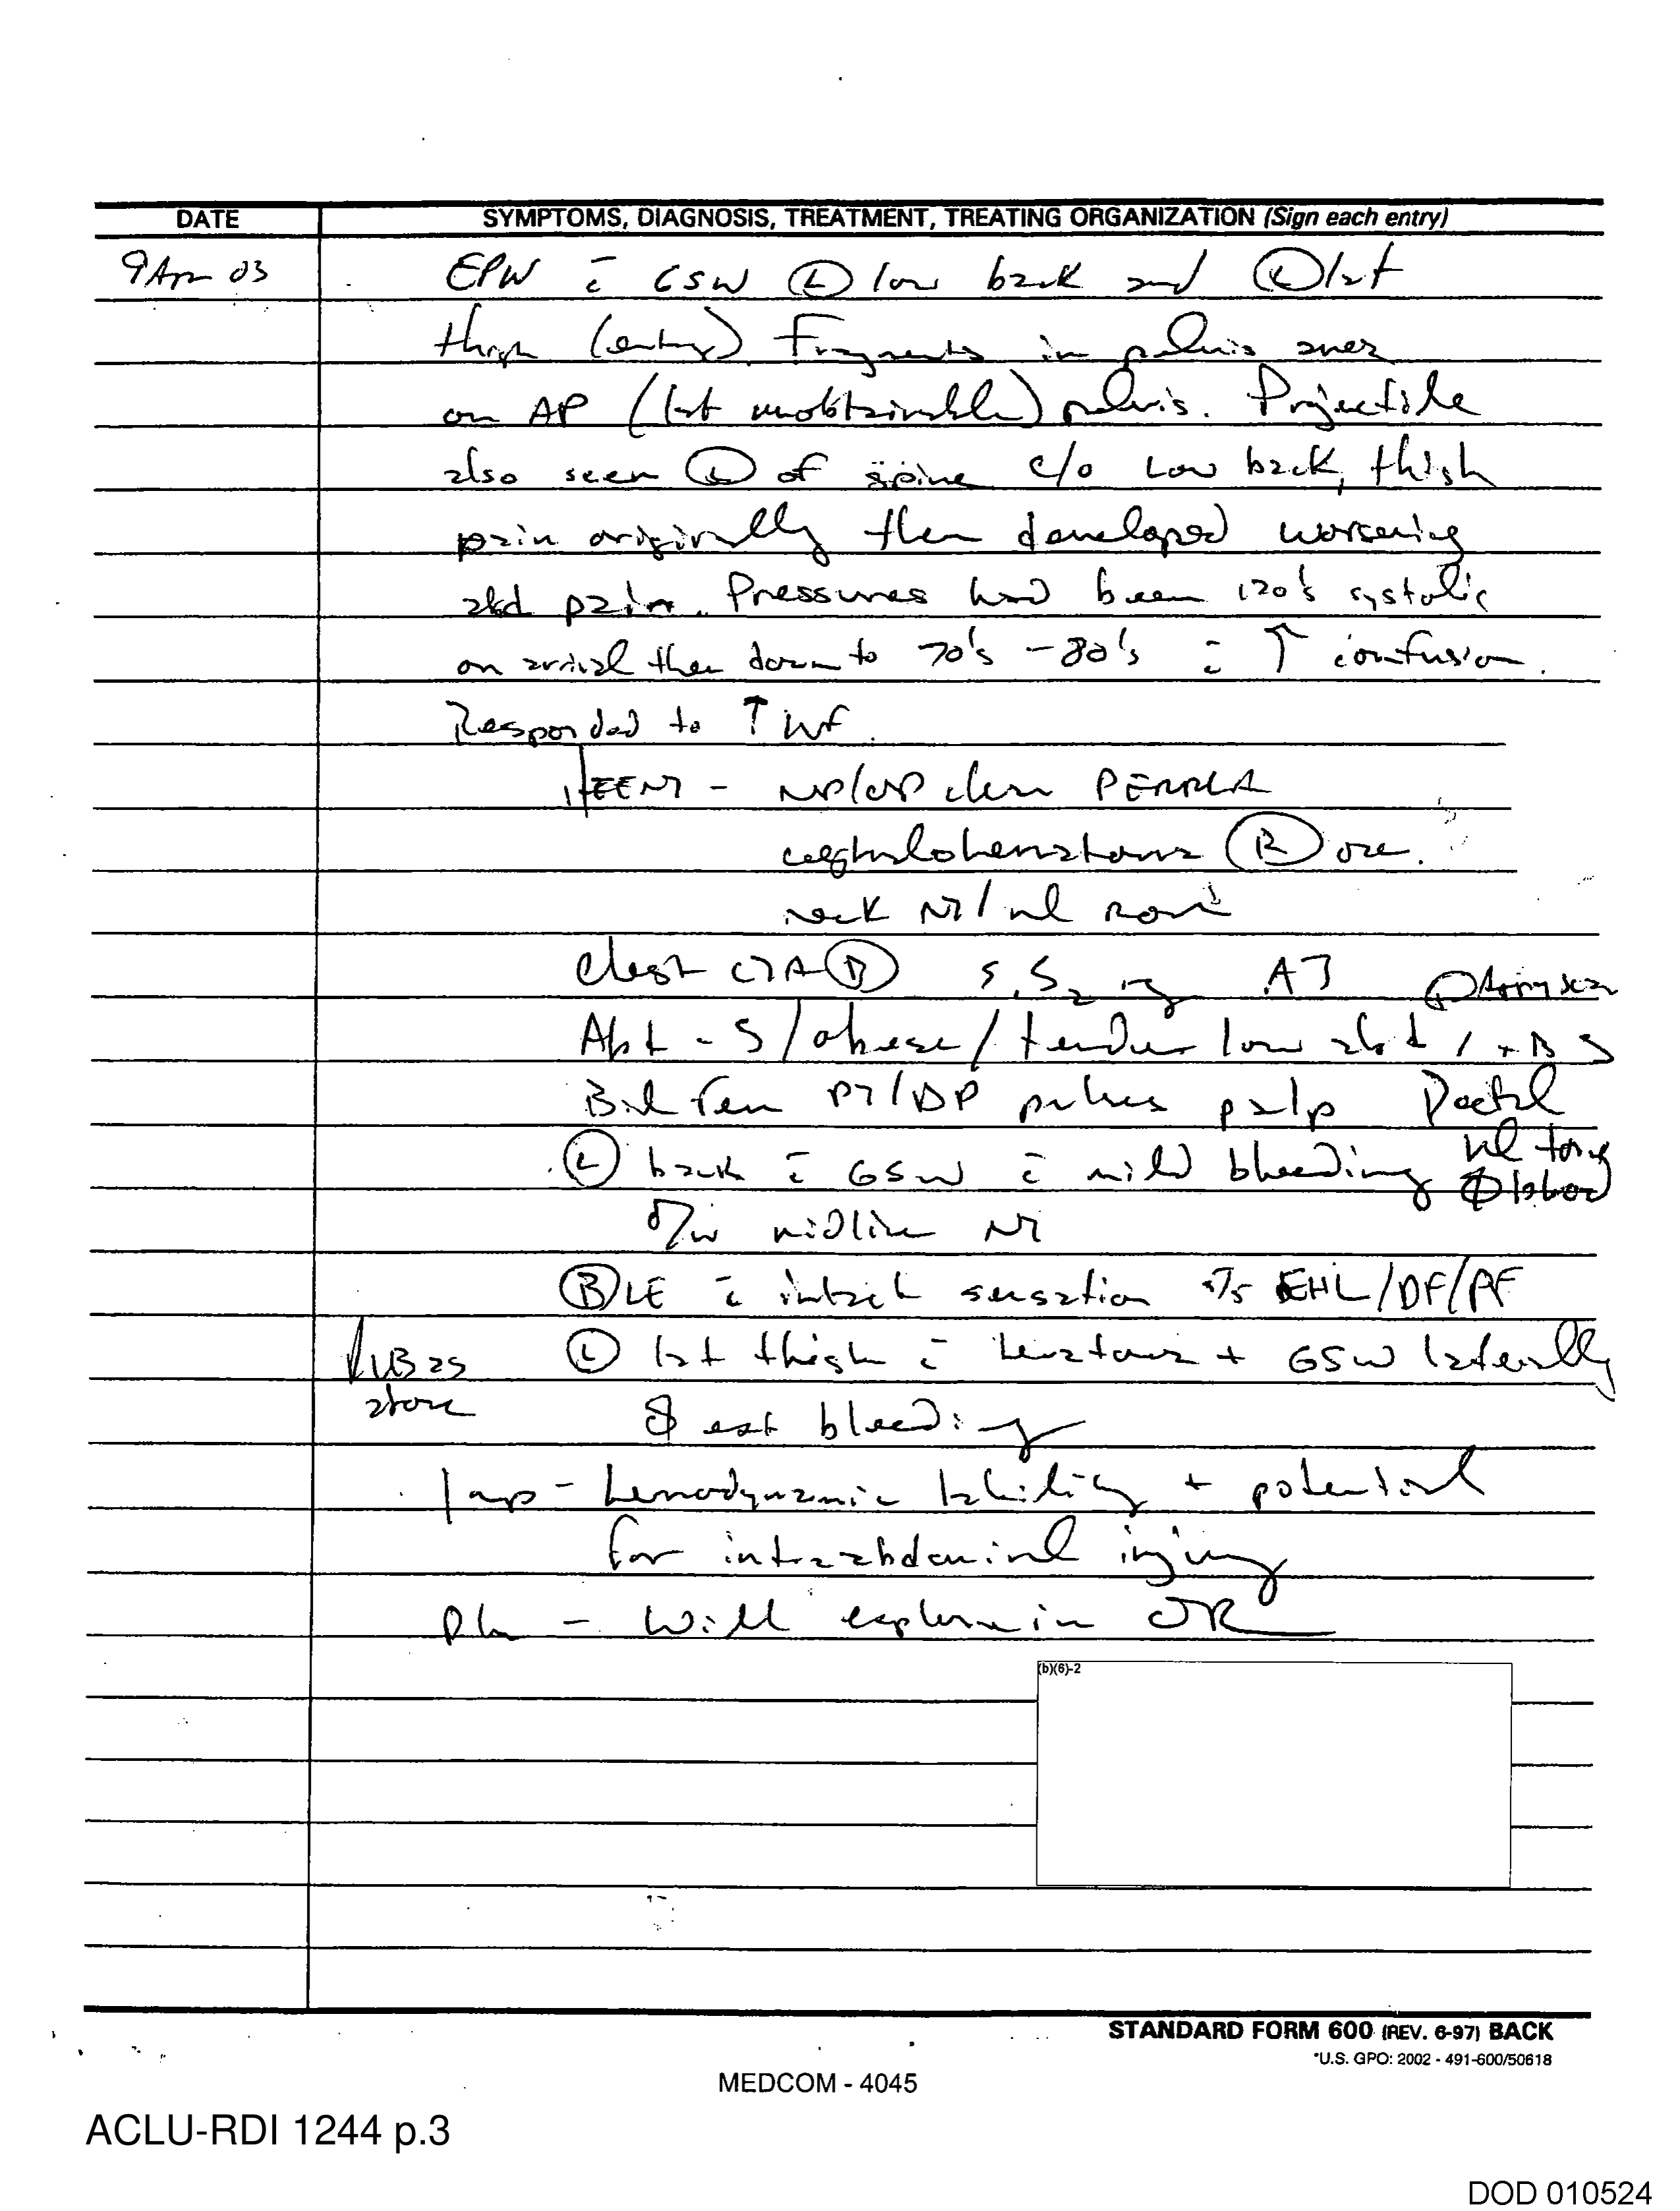 DATE SYMPTOMS, DIAGNOSIS, TREATMENT, TREATING ORGANIZATION (Sign each entry)
9 Apr 03 EPW c̄ GSW Ⓛ low back and Ⓛ lat
thigh (entry) Fragments in pelvis
on AP (lat unobtainable) pelvis. Projectile
also seen Ⓛ of spine c/o low back, thigh
pain originally then developed worsening
abd pain. Pressures had been 120's systolic
on arrival then down to 70's - 80's c̄ ↑ confusion.
Responded to ↑ IVF.
HEENT - NP/OP clear PERRLA
cephalohematoma Ⓡ
neck NT/nl ROM
Chest CTA Ⓑ S1S2 AT
Abd - S/obese/tender low abd / + BS
Bil Fem PT/DP pulses palp Rectal
Ⓛ back c̄ GSW c̄ mild bleeding nl tone
∅ blood
o/w midline NT
Ⓑ LE c̄ intact sensation 5/5 EHL/DF/PF
Ⓛ lat thigh c̄ hematoma + GSW laterally
as
above
∅ ext bleeding
Imp - hemodynamic lability + potential
for intraabdominal injury
Pln - Will explore in OR
(b)(6)-2
STANDARD FORM 600 (REV. 6-97) BACK
*U.S. GPO: 2002 - 491-600/50618
MEDCOM - 4045
ACLU-RDI 1244 p.3
DOD 010524